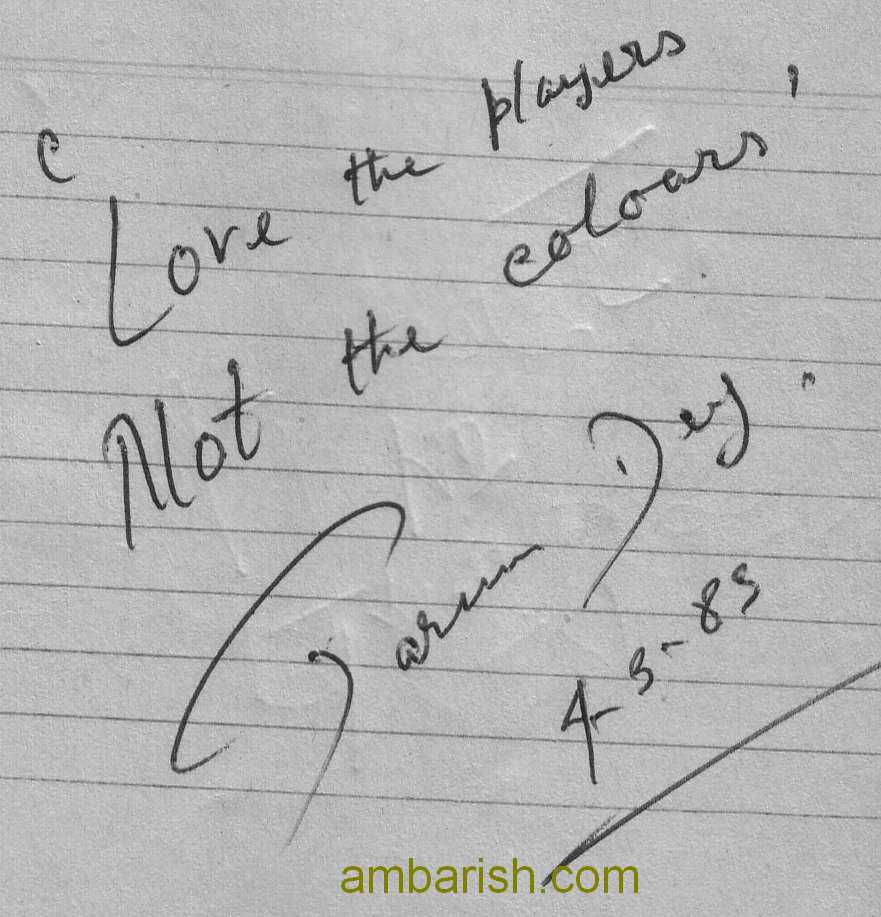 ‘Love the players
Not the colours’
Tarun Dey.
ambarish.com